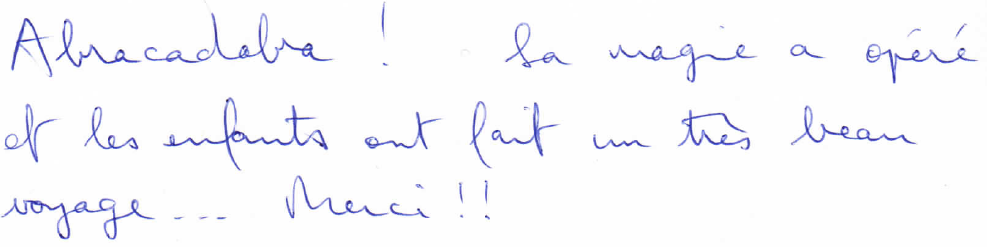 Abracadabra ! La magie a opéré
et les enfants ont fait un très beau
voyage... Merci !!